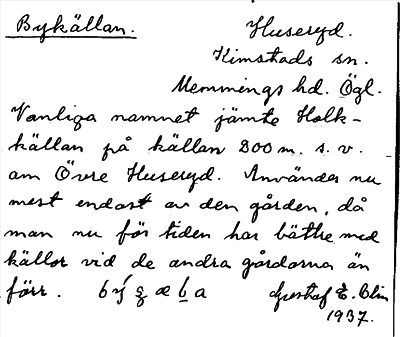 Bykällan. Huseryd.
Kimstads sn.
Memmings hd. Ögl.
Vanliga namnet jämte Holk-
källan på källan 800 m. s. v.
om Övre Huseryd. Användes nu
mest endast av den gården, då
man nu för tiden har bättre med
källor vid de andra gårdarna än
förr. Gustaf E. Olin
1937.